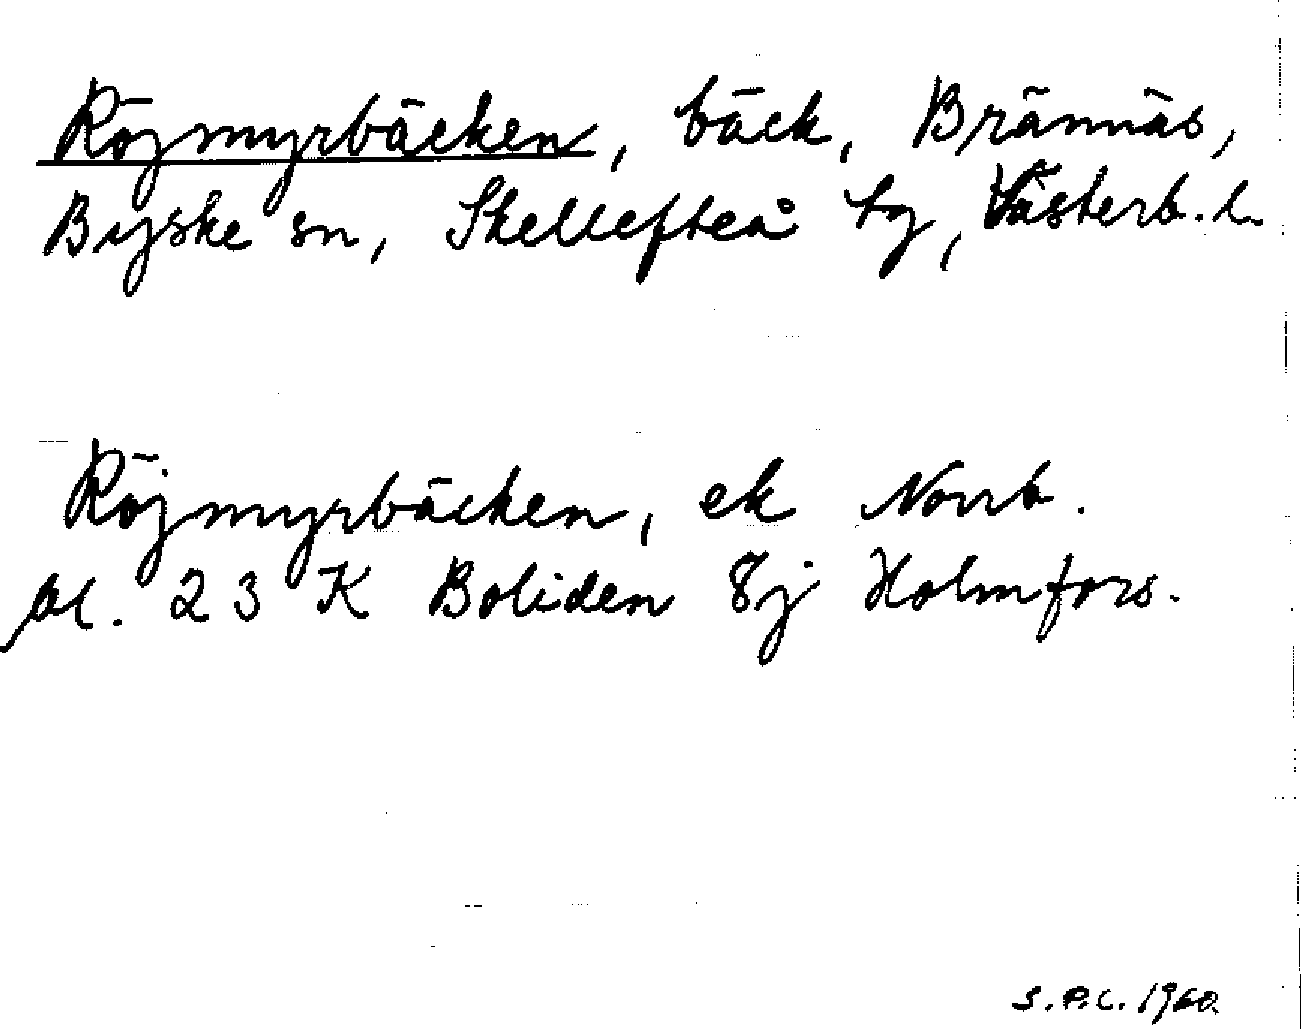 Röjmyrbäcken, bäck, Brännäs,
Byske sn, Skellefteå tg, Västerb. l.
Röjmyrbäcken, ek Norrb.
bl. 23 K Boliden 8j Holmfors.
S.P.C. 1960.